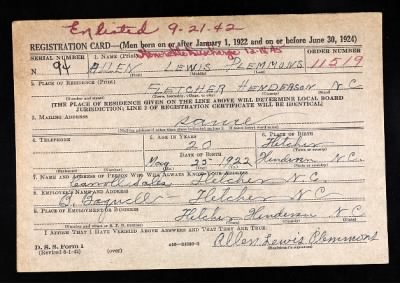 Enlisted 9-21-42
Honorable Discharge 12-18-45
REGISTRATION CARD—(Men born on or after January 1, 1922 and on or before June 30, 1924)
SERIAL NUMBER 1. NAME (Print) ORDER NUMBER
N 94 ALLEN LEWIS CLEMMONS 11519
(First) (Middle) (Last)
2. PLACE OF RESIDENCE (Print)
FLETCHER HENDERSON N.C.
(Number and street) (Town, township, village, or city) (County) (State)
[THE PLACE OF RESIDENCE GIVEN ON THE LINE ABOVE WILL DETERMINE LOCAL BOARD
JURISDICTION; LINE 2 OF REGISTRATION CERTIFICATE WILL BE IDENTICAL]
3. MAILING ADDRESS
same
[Mailing address if other than place indicated on line 2. If same insert word same]
4. TELEPHONE 5. AGE IN YEARS 6. PLACE OF BIRTH
20 Fletcher
DATE OF BIRTH (Town or county)
May 22 1922 Henderson N.C.
(Exchange) (Number) (Mo.) (Day) (Yr.) (State or country)
7. NAME AND ADDRESS OF PERSON WHO WILL ALWAYS KNOW YOUR ADDRESS
Carroll Sales Fletcher N.C.
8. EMPLOYER'S NAME AND ADDRESS
Fletcher N.C.
9. PLACE OF EMPLOYMENT OR BUSINESS
Fletcher Henderson N.C.
(Number and street or R. F. D. number) (Town) (County) (State)
I AFFIRM THAT I HAVE VERIFIED ABOVE ANSWERS AND THAT THEY ARE TRUE.
D. S. S. Form 1
(Revised 6-1-42) (over)
Allen Lewis Clemmons
(Registrant's signature)